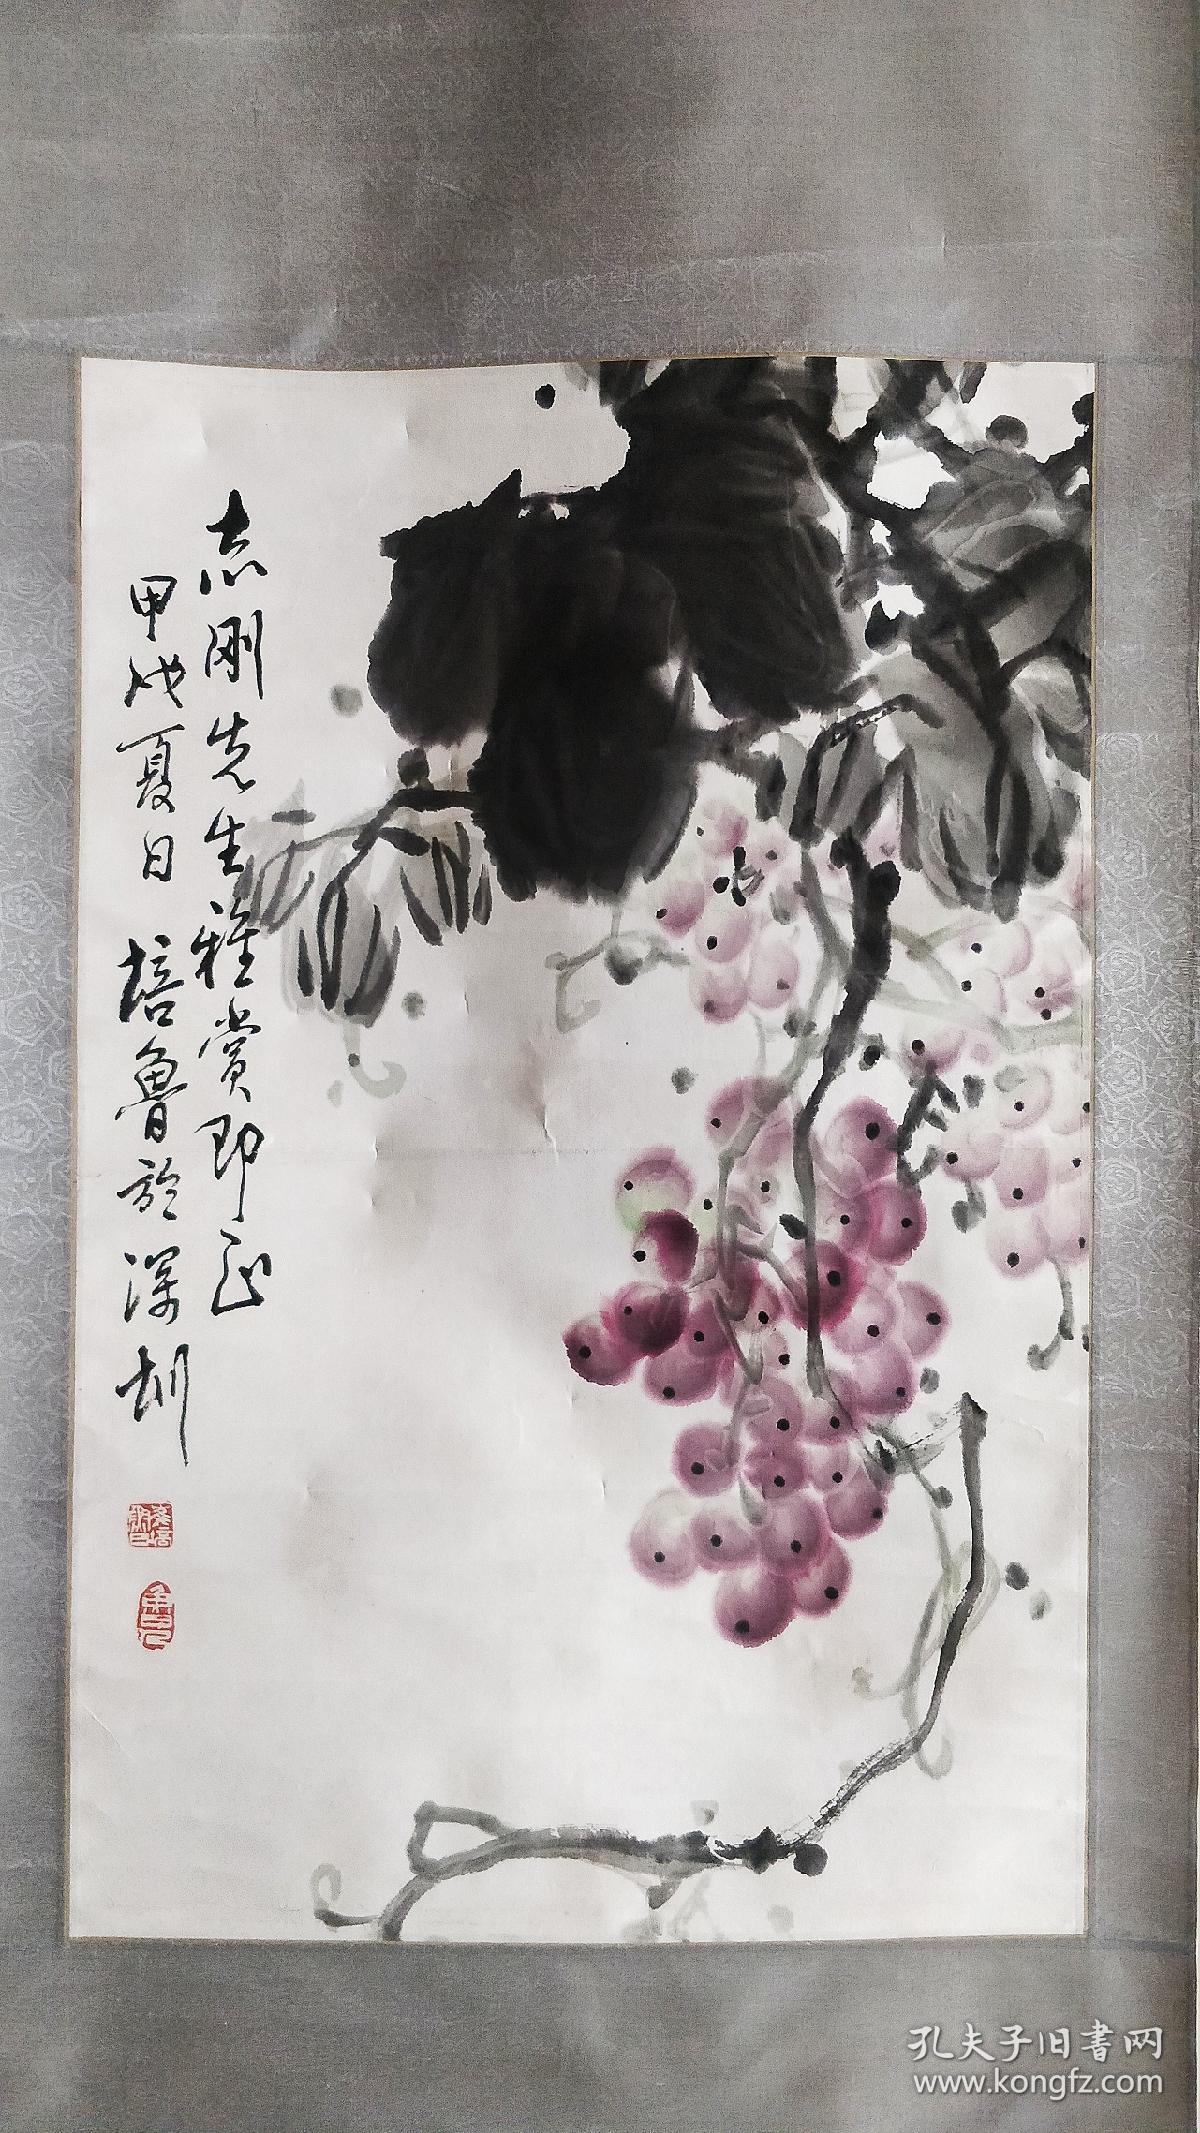 志刚先生雅赏即正
甲戌夏日 培鲁於深圳
孔夫子旧书网
www.kongfz.com